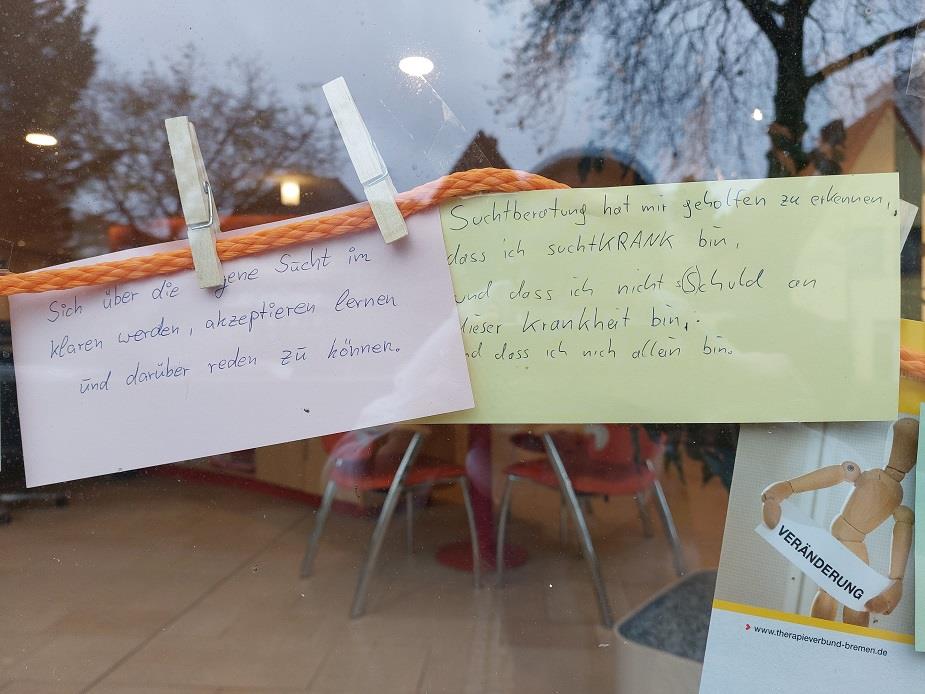 Sich über die gene Sucht im
klaren werden, akzeptieren lernen
und darüber reden zu können.
Suchtberatung hat mir geholfen zu erkennen,
dass ich suchtKRANK bin,
und dass ich nicht s(S)chuld an
dieser Krankheit bin,
nd dass ich nich allein bin.
VERÄNDERUNG
www.therapieverbund-bremen.de